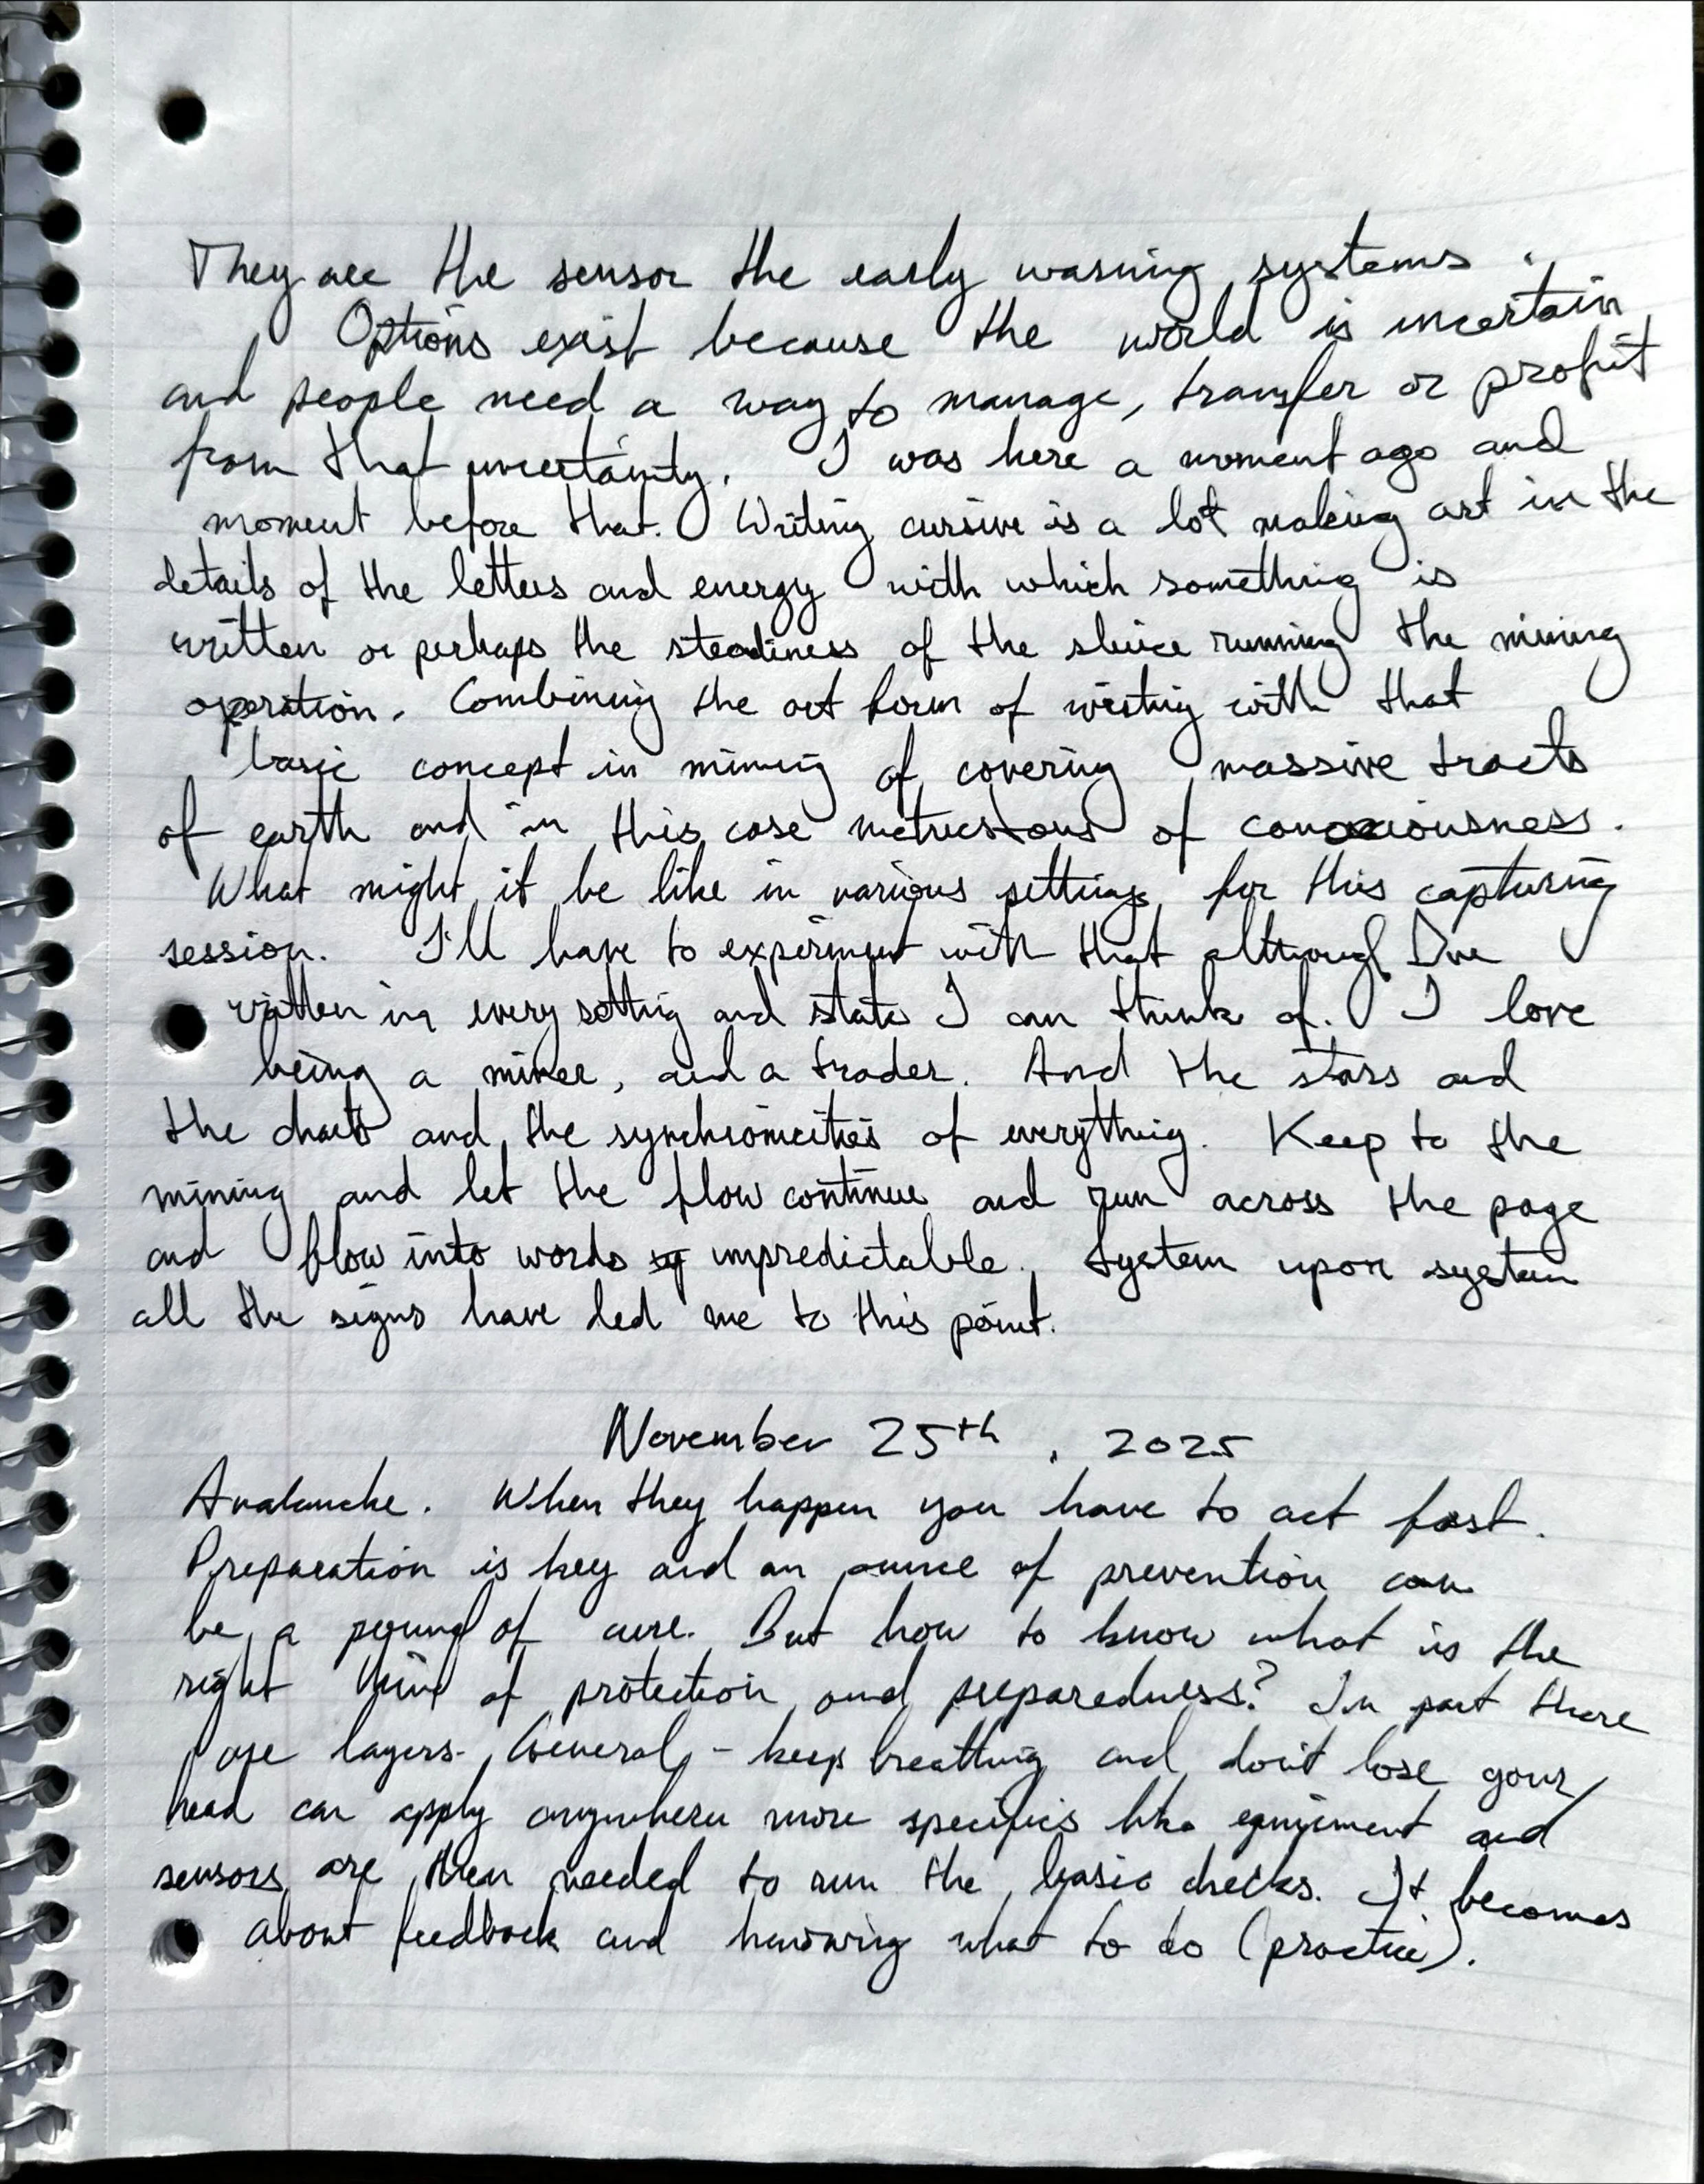 They are the sensor the early warning systems.
Options exist because the world is uncertain
and people need a way to manage, transfer or profit
from that uncertainty. I was here a moment ago and
moment before that. Writing cursive is a lot making art in the
details of the letters and energy with which something is
written or perhaps the steadiness of the sluice running the mining
operation. Combining the art form of writing with that
basic concept in mining of covering massive tracts
of earth and in this case metric tons of consciousness.
What might it be like in various settings for this capturing
session. I'll have to experiment with that although I've
written in every setting and state I can think of. I love
being a miner, and a trader. And the stars and
the charts and the synchronicities of everything. Keep to the
mining and let the flow continue and run across the page
and flow into words unpredictable. System upon system
all the signs have led me to this point.
November 25th, 2025
Avalanche. When they happen you have to act fast.
Preparation is key and an ounce of prevention can
be a pound of cure. But how to know what is the
right kind of protection and preparedness? In part there
are layers. General - keep breathing and don't lose your
head can apply anywhere more specifics like equipment and
sensors are then needed to run the basic checks. It becomes
about feedback and knowing what to do (practice).